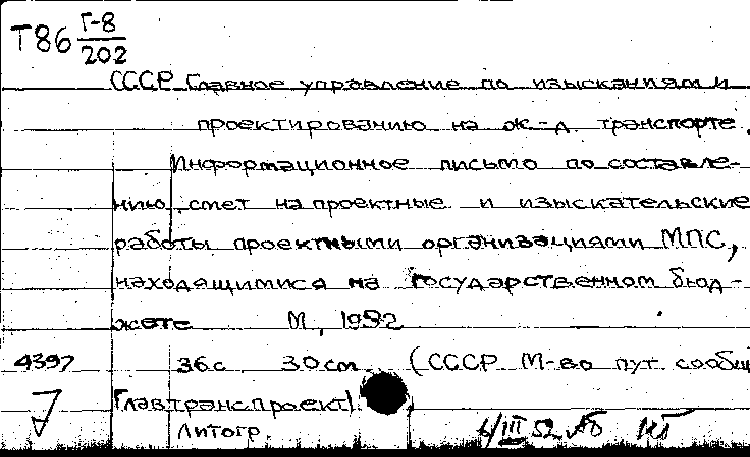 Т86 Г-8
202
СССР Главное управление по изысканиям и
проектированию на ж.-д. транспорте.
Информационное письмо по составле-
нию смет на проектные и изыскательские
работы проектными организациями МПС,
находящимися на государственном бюд-
жете М., 1952
4397 36 с. 30 см. (СССР М-во пут. сообщ
Главтранспроект).
Литогр. 6/III 52